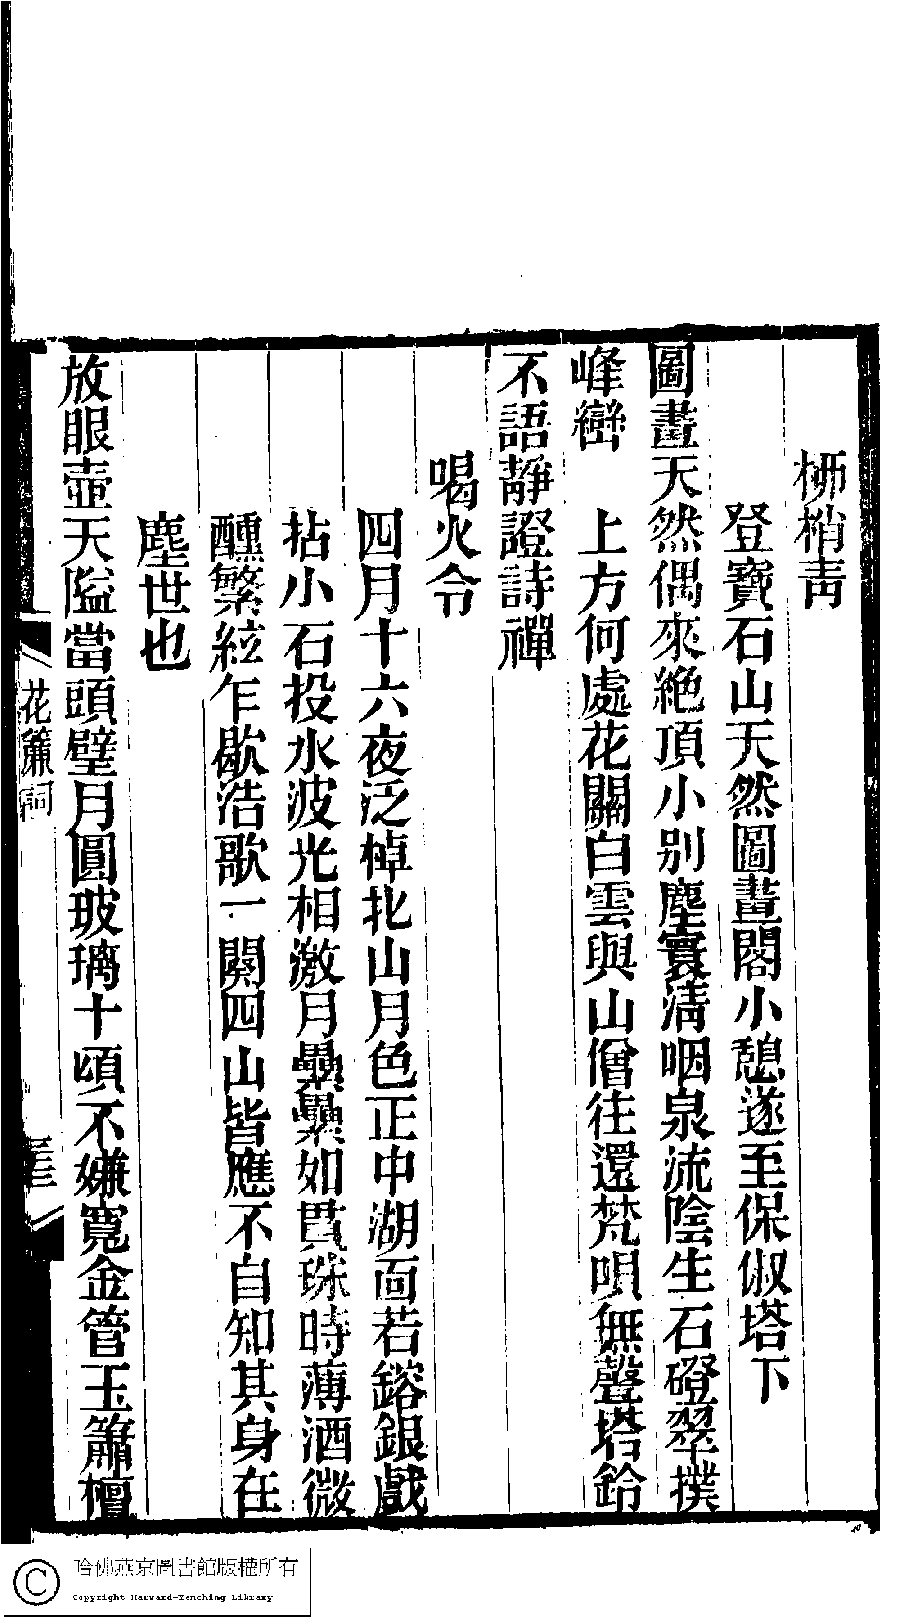 柳梢青
登寶石山天然圖畫閣小憩遂至保俶塔下
圖畫天然偶來絶頂小別塵寰清咽泉流陰生石磴翠撲
峰巒　上方何處花關白雲與山僧往還梵唄無聲塔鈴
不語靜證詩禪
喝火令
四月十六夜泛棹北山月色正中湖面若鎔銀戲
拈小石投水波光相激月纍纍如貫珠時薄酒微
醺繁絃乍歇浩歌一闋四山皆應不自知其身在
塵世也
放眼壺天隘當頭璧月圓玻璃十頃不嫌寬金管玉簫檀
花簾詞
三三
哈佛燕京圖書館版權所有
Copyright Harvard-Yenching Library